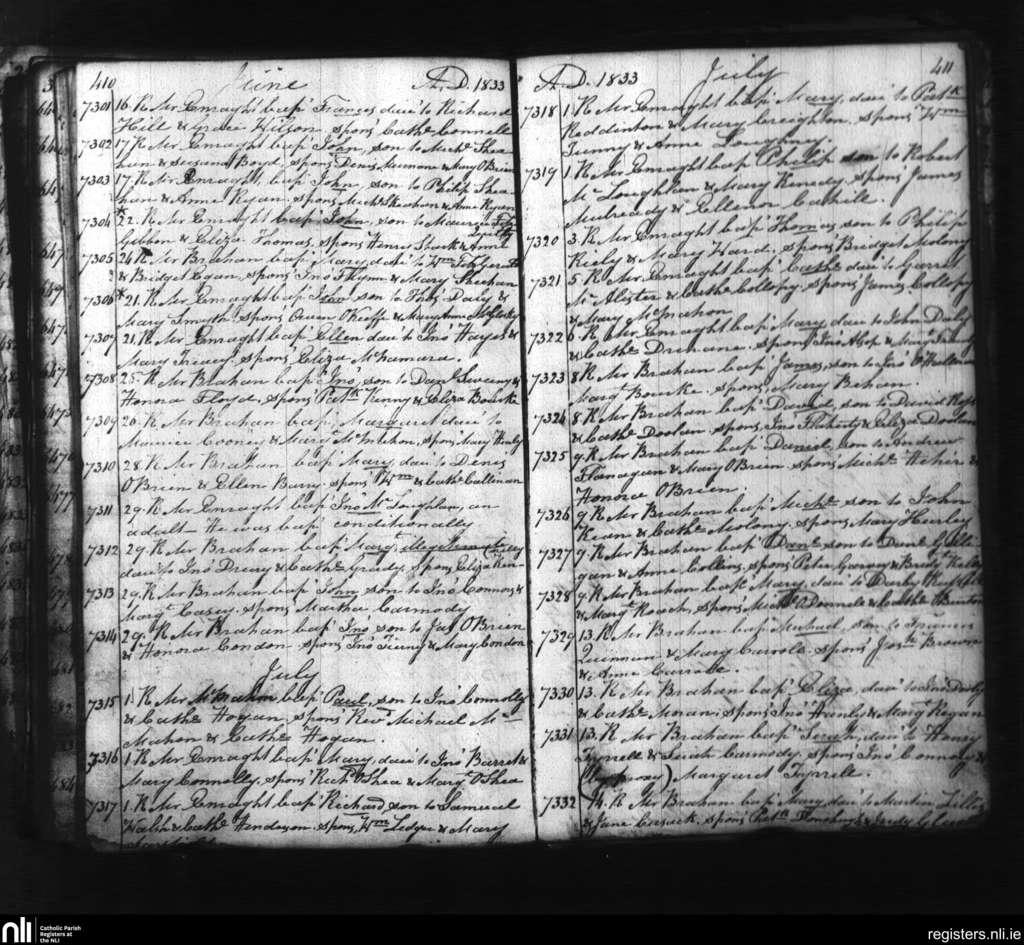 410 June A.D. 1833
7301 16. R Mr Enraght bap Frances dau to Richard
Hill & Grace Wilson. spons Cathe Connell
7302 17 R Mr Enraght bap John, son to Michl Shee
han & Boyd, spons Denis & Mary OBrien
7303 17. R Mr Enraght, bap John, son to Philip Shee
han & Anne Ryan. spons Michl Sheehan & Anne Ryan
7304 * 22. R Mr Enraght bap John, son to Maurice
& Eliza Thomas, spons Henry & Anne
7305 24 R Mr Brahan bap Mary, dau to Wm Fitzgerald
& Bridget Egan, spons Jno Flynn & Mary Sheehan
7306 * 21. R Mr Enraght bap son to Thos Daly &
Mary Smyth. spons Owen OKeeffe & Mary Anne
7307 21. R Mr Enraght bap Ellen dau to Jno Hayes &
Mary Treacy. spons Eliza McNamara.
7308 25. R Mr Brahan bap Jno, son to Danl Sweeny &
Honora Floyd, spons Patk Kenny & Eliza Bourke
7309 26. R Mr Brahan bap Margaret dau to
Maurice Cooney & Mary McMahon, spons Mary Hanly
7310 28. R Mr Brahan bap Mary, dau to Denis
OBrien & Ellen Barry. spons Wm & Cathe Callenan
7311 29. R Mr Enraght bap Jno Mc Loughlan, an
adult — He was bap conditionally
7312 29. R Mr Brahan bap Margt illegitimate
dau to Jno Drury & Cathe Grady. spons Eliza
7313 29. R Mr Brahan bap John son to Jno Connors &
Margt Casey. spons Martha Carmody
7314 29. R Mr Brahan bap Jno son to Jas OBrien
& Honora Condon spons Jno Tierny & Mary Condon
July
7315 1. R Mr McMahon bap Paul, son to Jno Connolly
& Cathe Hogan, spons Revd Michael Mc
Mahon & Cathe Hogan.
7316 1 R Mr Enraght bap Mary, dau to Jno Barrett &
Mary Connolly. spons OShea & Margt OShea
7317 1. R Mr Enraght bap Richard, son to Samuel
Walsh & Cathe Henderson, spons Wm Ledger & Mary
A.D. 1833 July 411
7318 1. R Mr Enraght bap Mary, dau to Patk
Reddinton & Mary Creighton, spons Wm
Tunny & Anne Loughny
7319 1. R Mr Enraght bap Philip son to Robert
Mc Loughlan & Mary Kenedy, spons James
Mulready & Ellenor Cahill.
7320 3. R Mr Enraght bap Thomas, son to Philip
Kiely & Mary Ward. spons Bridget Molony
7321 5 R Mr Enraght bap Cathe dau to
Mc Alister & Cathe Collopy, spons James Collopy
& Mary McMahon
7322 6 R Mr Enraght bap Mary dau to John Daly
& Cathe Drinane. spons Jno & Mary
7323 8 R Mr Brahan bap James, son to Jno OHalloran
Margt Bourke. spons Mary Behan.
7324 8 R Mr Brahan bap David, son to David
& Cathe Doolan spons Jno Flaherty & Eliza Doolan
7325 9. R Mr Brahan bap Daniel, son to Andrew
Flanagan & Mary OBrien spons Michl Hehir &
Honora OBrien.
7326 9. R Mr Brahan bap Michl son to John
Kean & Cathe Molony, spons Mary Hurley
7327 9. R Mr Brahan bap Danl son to Danl Galli
gan & Anne Collins, spons Peter Garvey & Bridt
7328 9. R Mr Brahan bap Mary, dau to Darby
& Margt Roach, spons Michl ODonnell & Cathe
7329 13. R Mr Brahan bap Michael, son to Francis
Quinnan & Mary Carroll. spons Josh Brown
& Anne Carroll.
7330 13. R Mr Brahan bap Eliza, dau to Jno Daly
& Cathe Moran, spons Jno Hanly & Margt Regan
7331 13. R Mr Brahan bap Sarah, dau to Henry
Tyrrell & Sarah Carmody, spons Jno Connory &
(by proxy) Margaret Tyrrell.
7332 14. R Mr Brahan bap Mary, dau to Martin
& Jane Cusack. spons Patk & Judy
nli Catholic Parish
Registers at
the NLI
registers.nli.ie